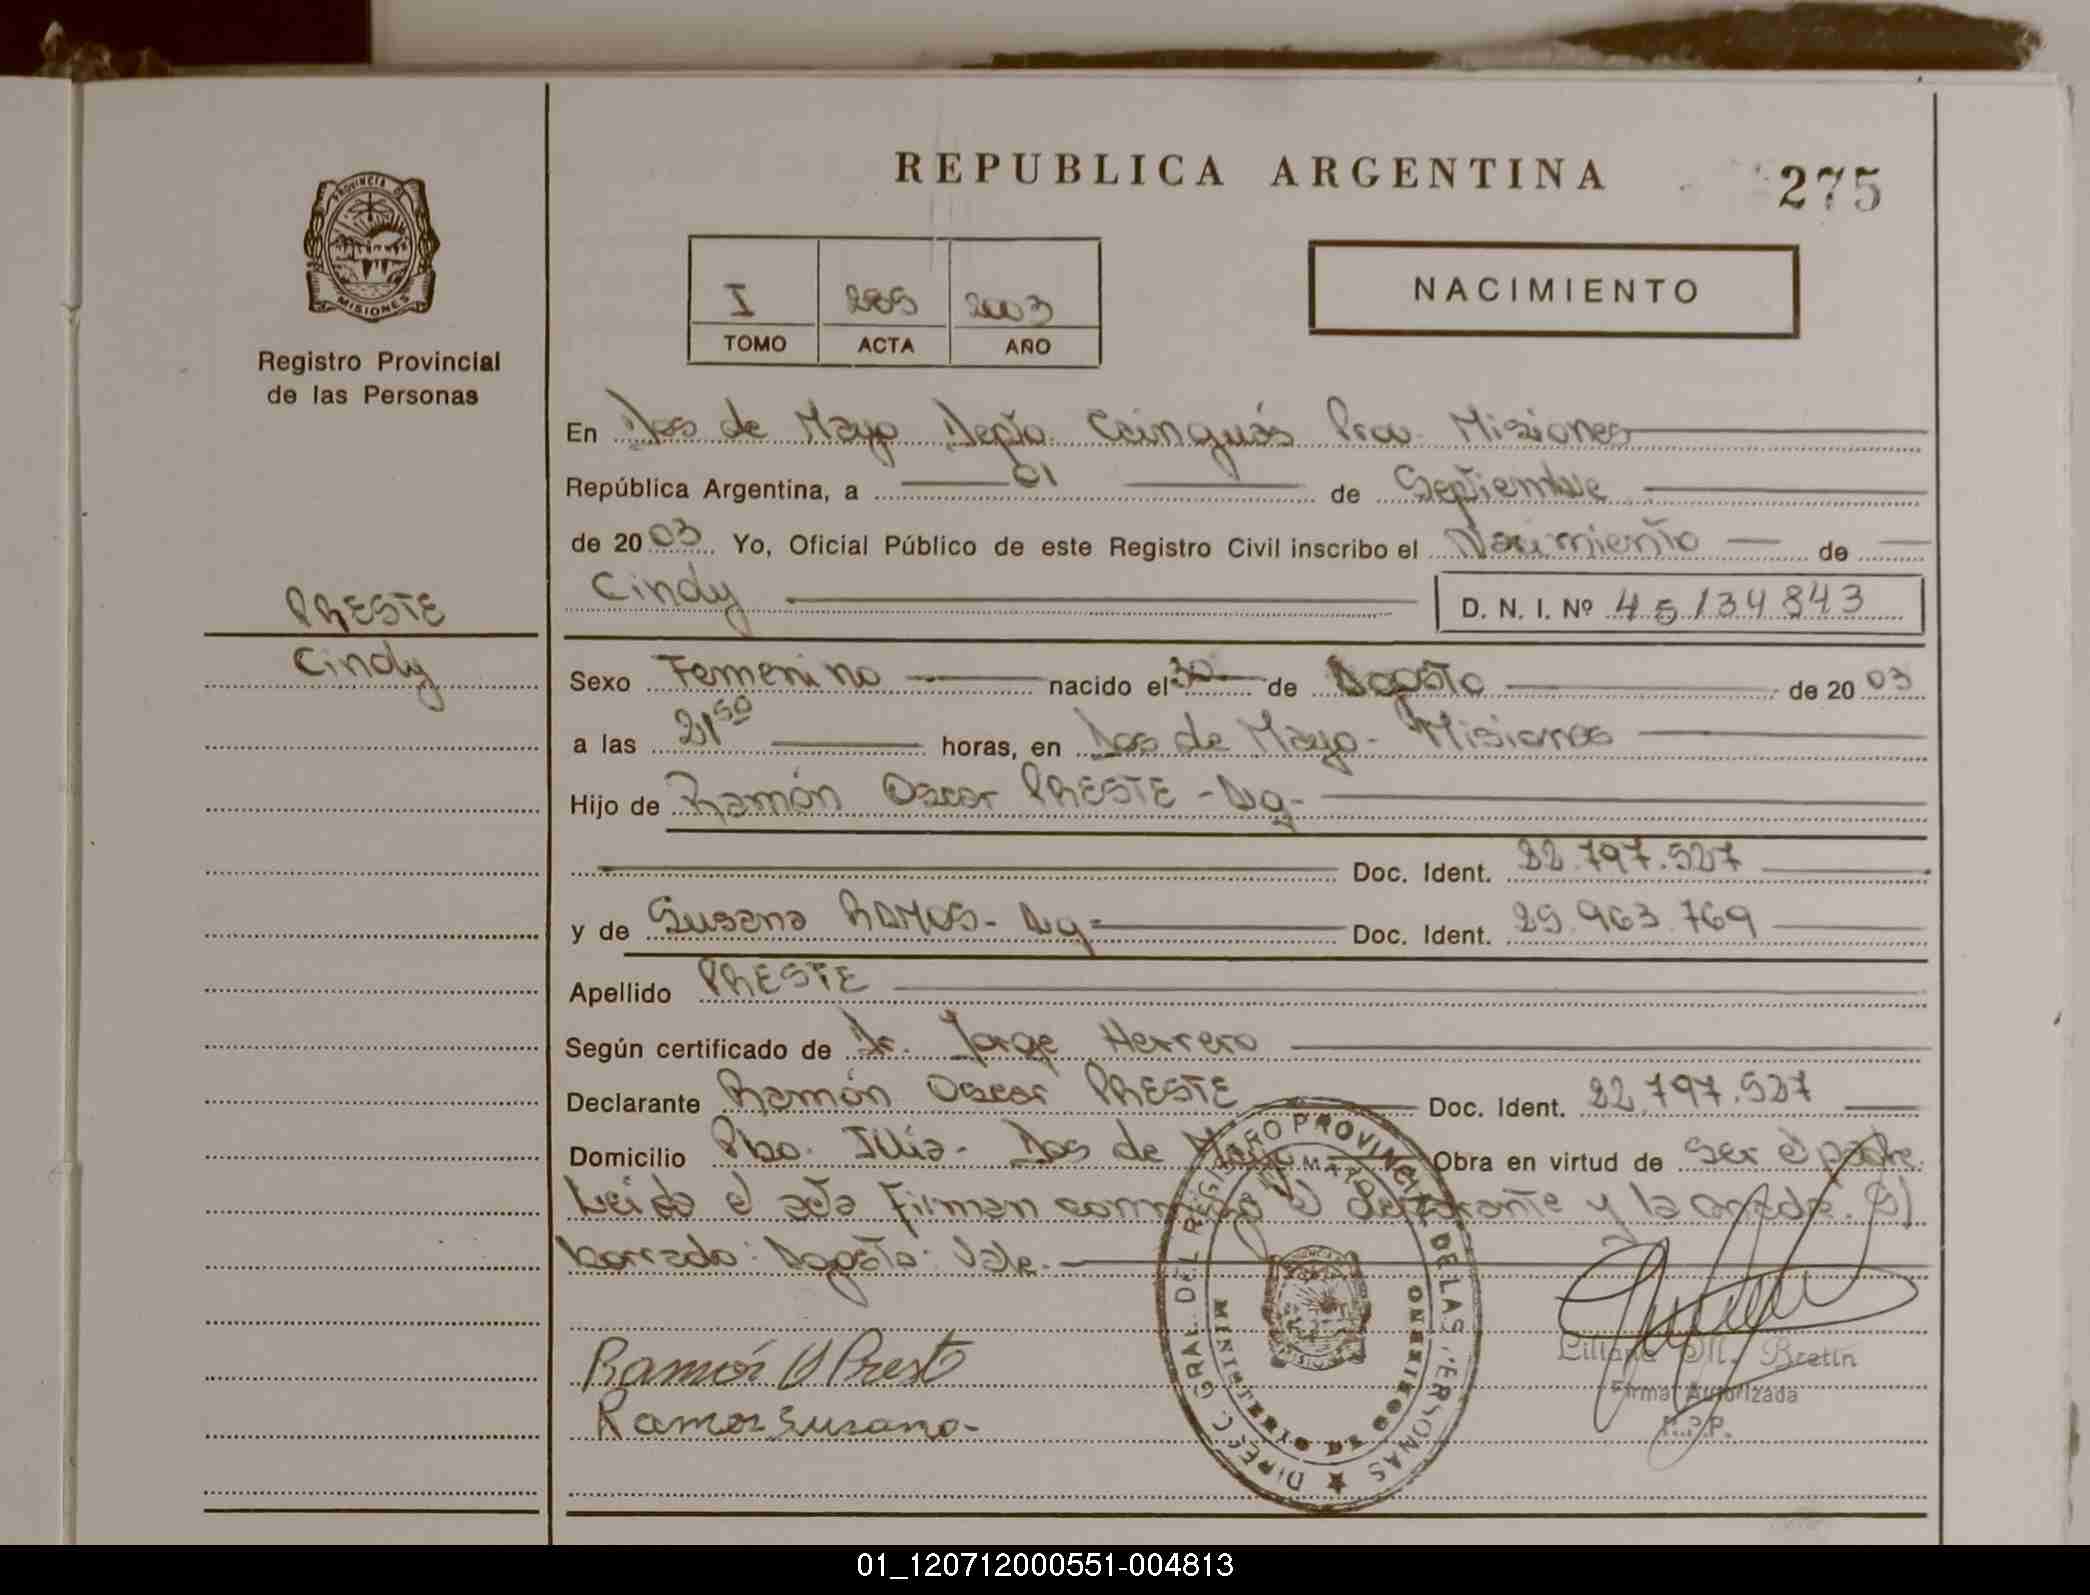 REPUBLICA ARGENTINA
275
PROVINCIA D
MISIONES
Registro Provincial
de las Personas
I 285 2003
TOMO ACTA AÑO
NACIMIENTO
En Dos de Mayo Depto. Cainguás Prov. Misiones
República Argentina, a 01 de Septiembre
de 2003 Yo, Oficial Público de este Registro Civil inscribo el Nacimiento de
Cindy D. N. I. Nº 45134843
PRESTE
Cindy
Sexo Femenino nacido el 30 de Agosto de 2003
a las 21 50 horas, en Dos de Mayo - Misiones
Hijo de Ramón Oscar PRESTE - Arg -
Doc. Ident. 22.797.527
y de Susana RAMOS - Arg - Doc. Ident. 25.963.769
Apellido PRESTE
Según certificado de Dr. Jorge Herrero
Declarante Ramón Oscar PRESTE Doc. Ident. 22.797.527
Domicilio Pbo. Illia - Dos de Mayo Obra en virtud de ser el padre.
Leida el acta firman conmigo el declarante y la citada. S/
borrado: Agosto: Vale.
Ramón O Preste
Ramos Susana
DIREC. GRAL. DEL REGISTRO PROVINCIAL DE LAS PERSONAS
MINISTERIO DE GOBIERNO
Liliana M. Bretin
Firma Autorizada
R.P.P.
01_120712000551-004813